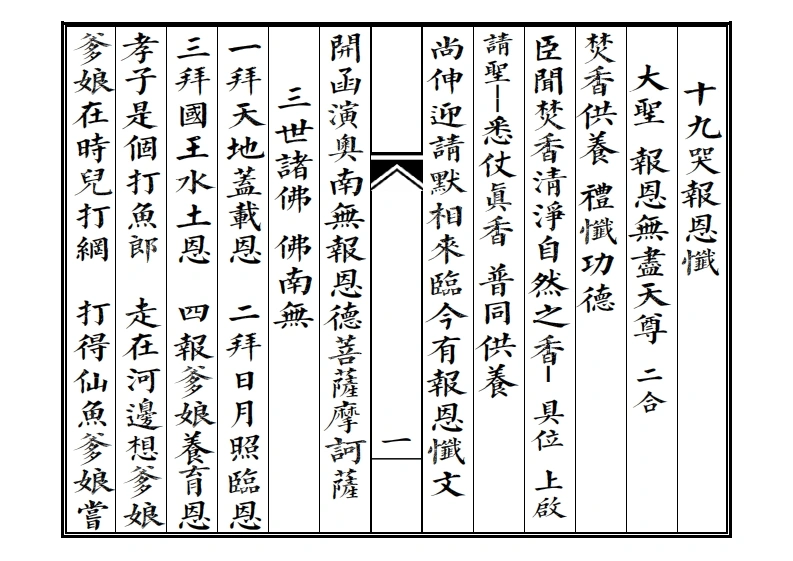 十九哭報恩懺
大聖 報恩無盡天尊 二合
焚香供養 禮懺功德
臣聞焚香清淨自然之香— 具位 上啟
請聖—悉仗眞香 普同供養
尚伸迎請默相來臨今有報恩懺文
一
開函演奧南無報恩德菩薩摩訶薩
三世諸佛 佛南無
一拜天地蓋載恩 二拜日月照臨恩
三拜國王水土恩 四報爹娘養育恩
孝子是個打魚郎 走在河邊想爹娘
爹娘在時兒打網 打得仙魚爹娘嘗